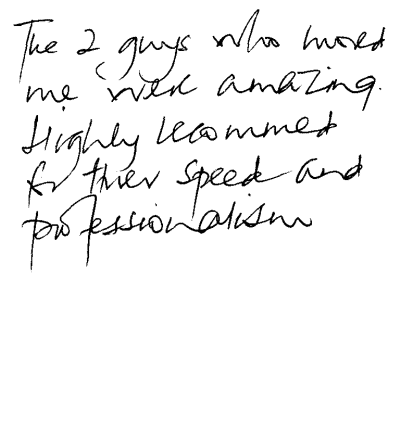 The 2 guys who moved
me were amazing.
Highly recommed
for thier speed and
professionalism